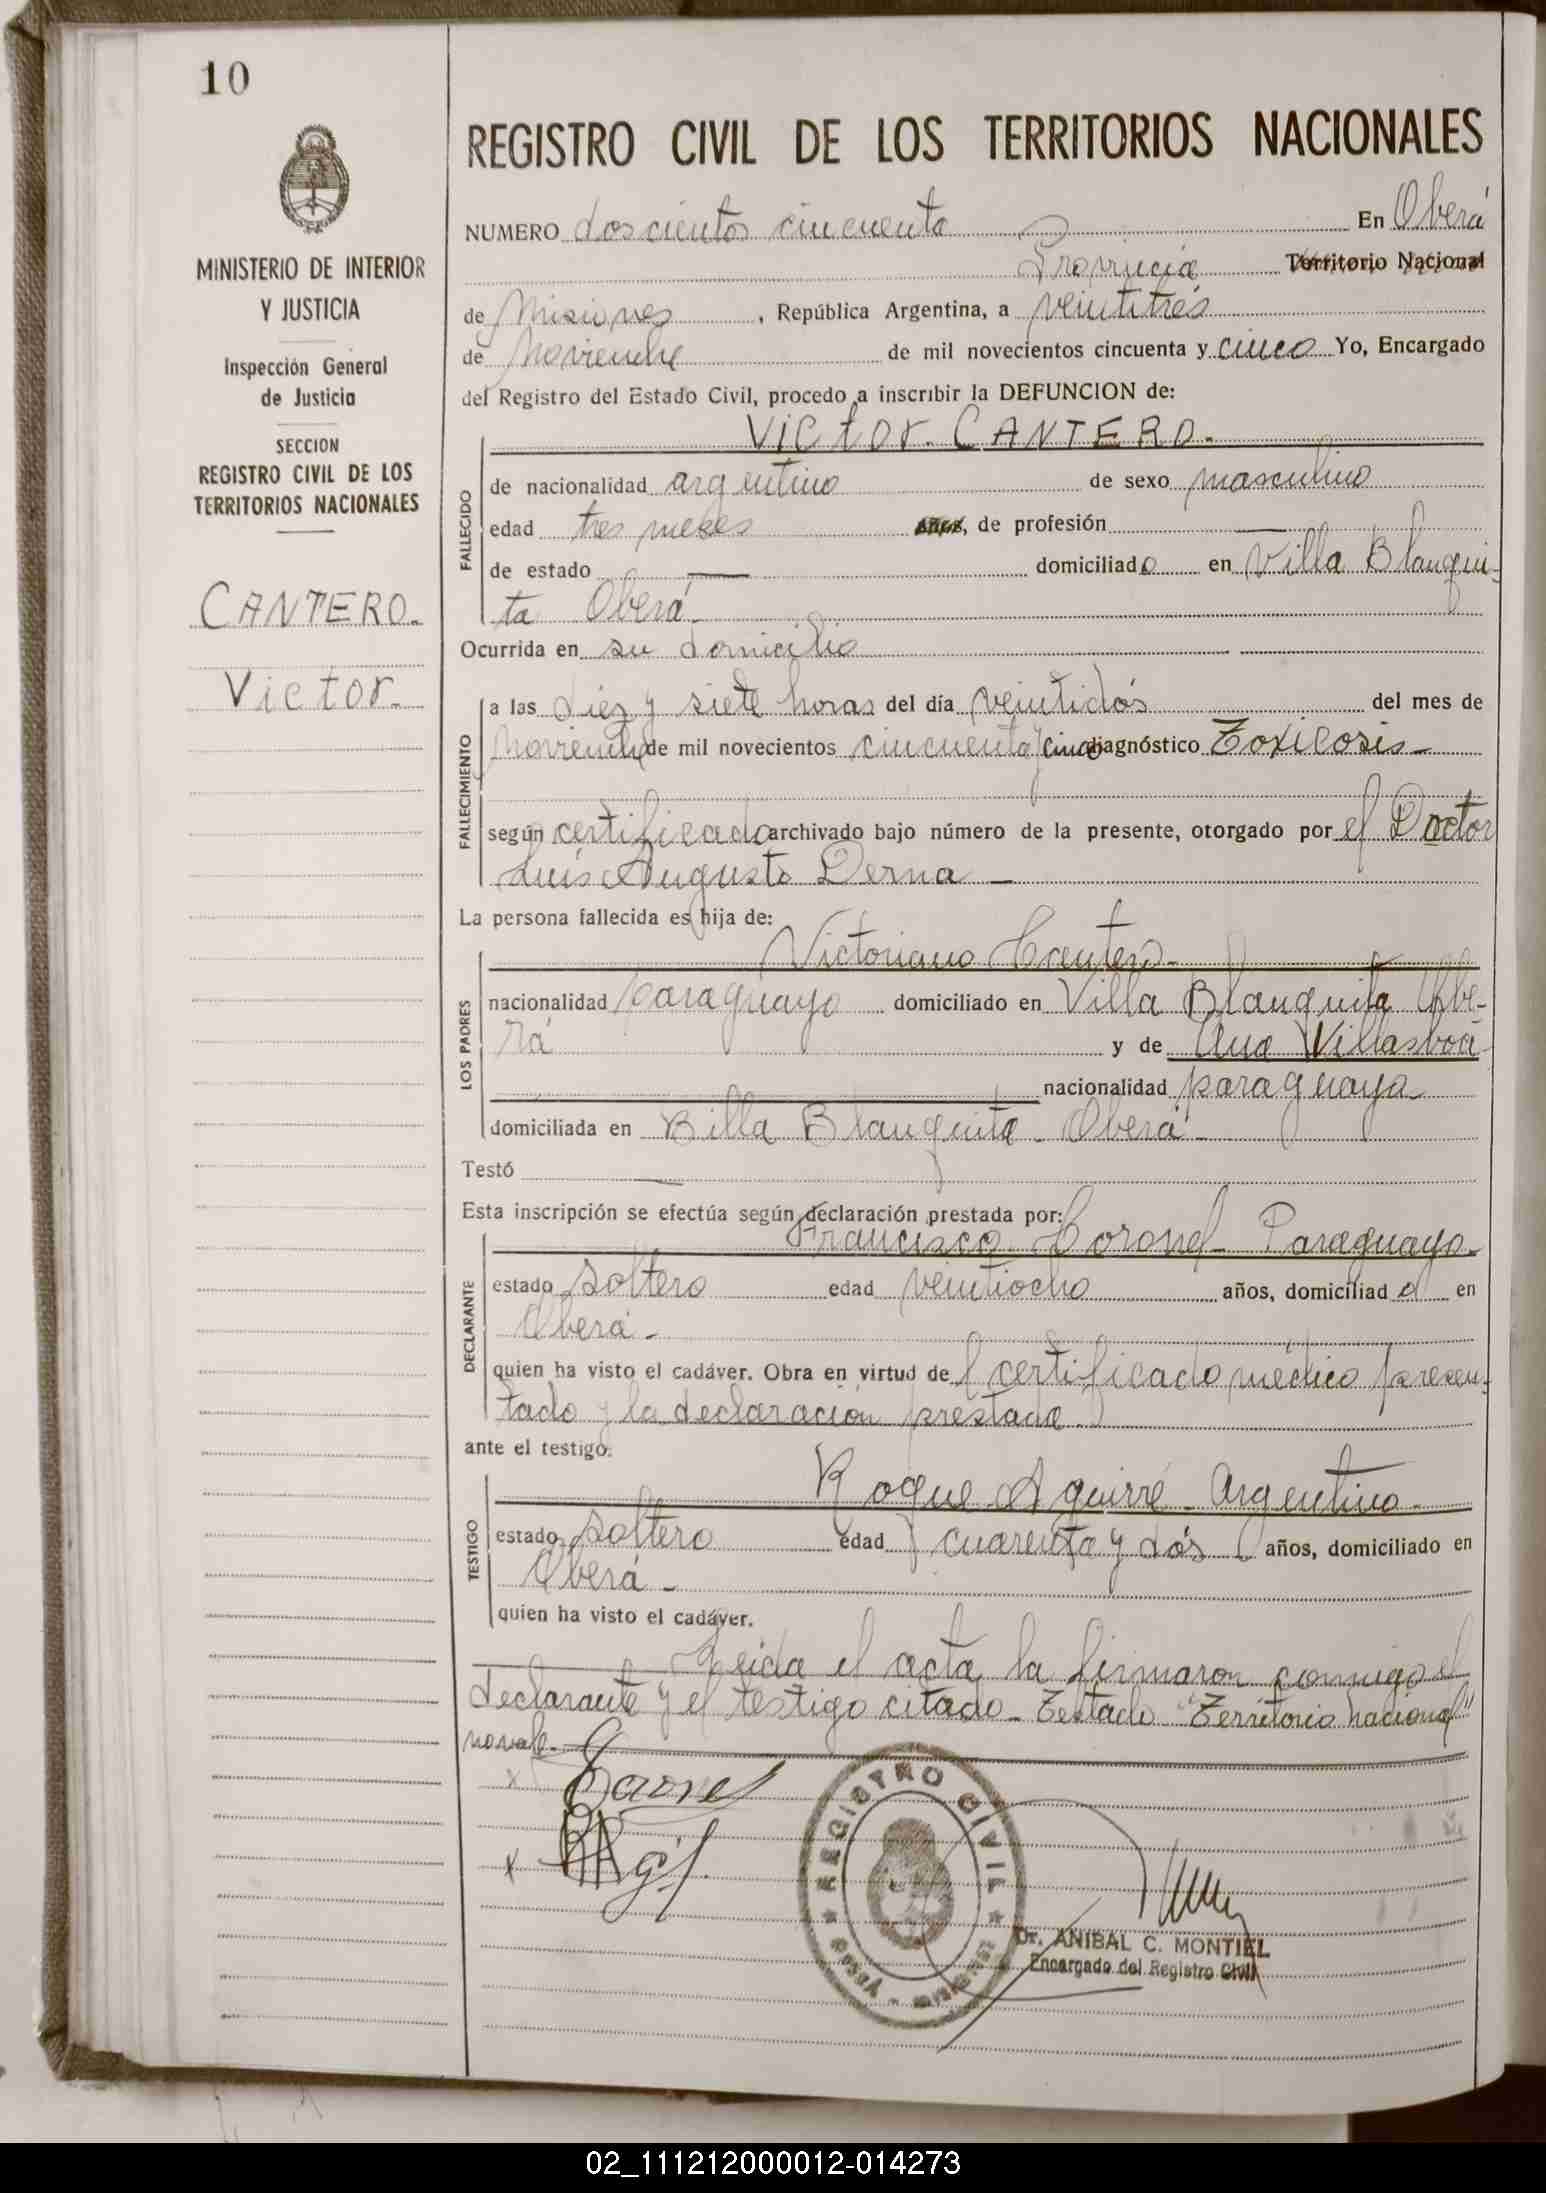 10
MINISTERIO DE INTERIOR
Y JUSTICIA
Inspección General
de Justicia
SECCION
REGISTRO CIVIL DE LOS
TERRITORIOS NACIONALES
CANTERO.
Victor.
REGISTRO CIVIL DE LOS TERRITORIOS NACIONALES
NUMERO doscientos cincuenta En Oberá
Provincia Territorio Nacional
de Misiones, República Argentina, a veintitrés
de Noviembre de mil novecientos cincuenta y cinco Yo, Encargado
del Registro del Estado Civil, procedo a inscribir la DEFUNCION de:
Victor. CANTERO.
FALLECIDO
de nacionalidad argentino de sexo masculino
edad tres meses años, de profesión —
de estado — domiciliado en Villa Blanqui-
ta Oberá-
Ocurrida en su domicilio
FALLECIMIENTO
a las diez y siete horas del día veintidós del mes de
Noviembre de mil novecientos cincuenta y cinco diagnóstico Toxicosis-
según certificado archivado bajo número de la presente, otorgado por el Doctor
Luis Augusto Derna —
La persona fallecida es hija de:
LOS PADRES
Victoriano Cantero-
nacionalidad paraguayo domiciliado en Villa Blanquita Obe-
rá y de Ana Villasboa
nacionalidad paraguaya-
domiciliada en Billa Blanquita - Oberá-
Testó —
Esta inscripción se efectúa según declaración prestada por:
DECLARANTE
Francisco Coronel- Paraguayo-
estado soltero edad veintiocho años, domiciliado en
Oberá-
quien ha visto el cadáver. Obra en virtud del certificado médico presen-
tado y la declaración prestada
ante el testigo:
TESTIGO
Roque Aguirre - Argentino-
estado soltero edad cuarenta y dós años, domiciliado en
Oberá-
quien ha visto el cadáver.
Leida el acta la firmaron conmigo el
declarante y el testigo citado- Testado "Territorio Nacional"
no vale-
x
x
REGISTRO CIVIL
OBERÁ - MISIONES
Dr. ANIBAL C. MONTIEL
Encargado del Registro Civil
02_111212000012-014273